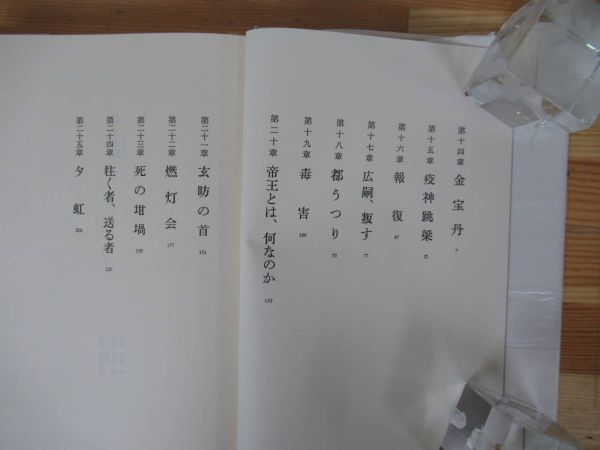 第十四章 金宝丹 7
第十五章 疫神跳梁 25
第十六章 報復 47
第十七章 広嗣、叛す 77
第十八章 都うつり 95
第十九章 毒害
第二十章 帝王とは、何なのか 132
第二十一章 玄昉の首 151
第二十二章 燃灯会 177
第二十三章 死の坩堝
第二十四章 往く者、送る者
第二十五章 夕虹